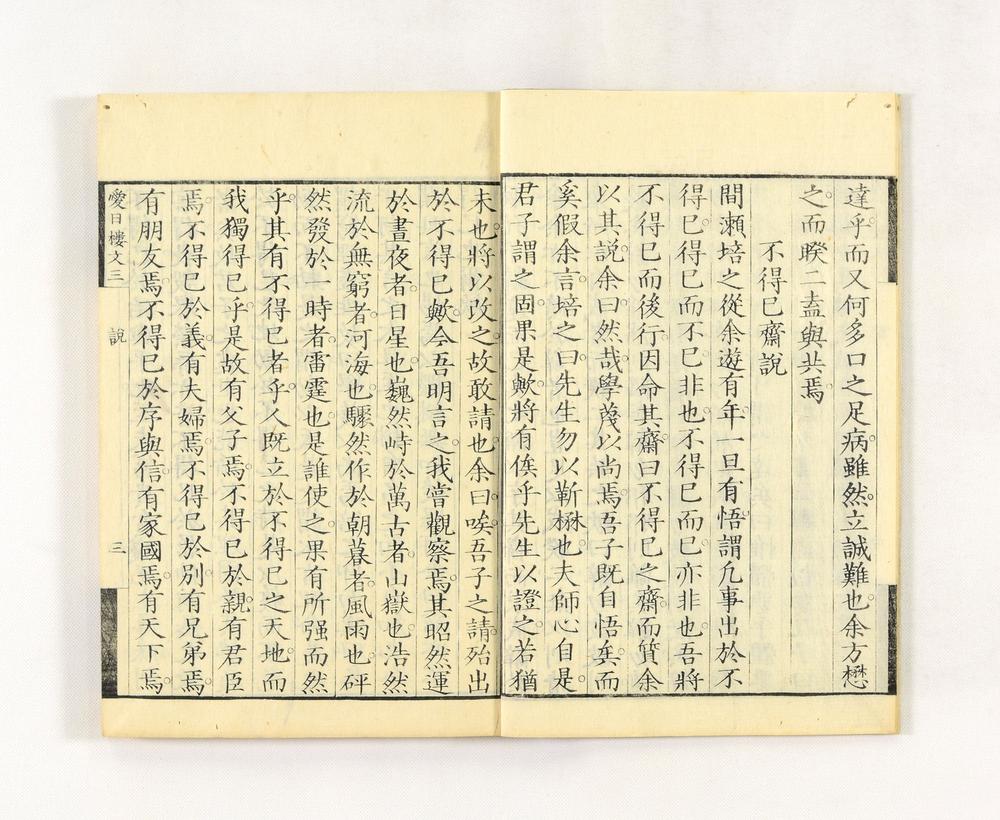 達乎而又何多口之足病雖然立誠難也余方懋
之而睽二盍與共焉
不得已齋說
間瀨培之從余遊有年一旦有悟謂凡事出於不
得已得已而不已非也不得已而已亦非也吾將
不得已而後行因命其齋曰不得已之齋而質余
以其說余曰然哉學蔑以尚焉吾子既自悟矣而
奚假余言培之曰先生勿以靳楙也夫師心自是
君子謂之固果是歟將有俟乎先生以證之若猶
未也將以改之故敢請也余曰唉吾子之請殆出
於不得已歟今吾明言之我嘗觀察焉其昭然運
於晝夜者日星也巍然峙於萬古者山嶽也浩然
流於無窮者河海也驟然作於朝暮者風雨也砰
然發於一時者雷霆也是誰使之果有所强而然
乎其有不得已者乎人既立於不得已之天地而
我獨得已乎是故有父子焉不得已於親有君臣
焉不得已於義有夫婦焉不得已於別有兄弟焉
有朋友焉不得已於序與信有家國焉有天下焉
愛日樓文三 說 三